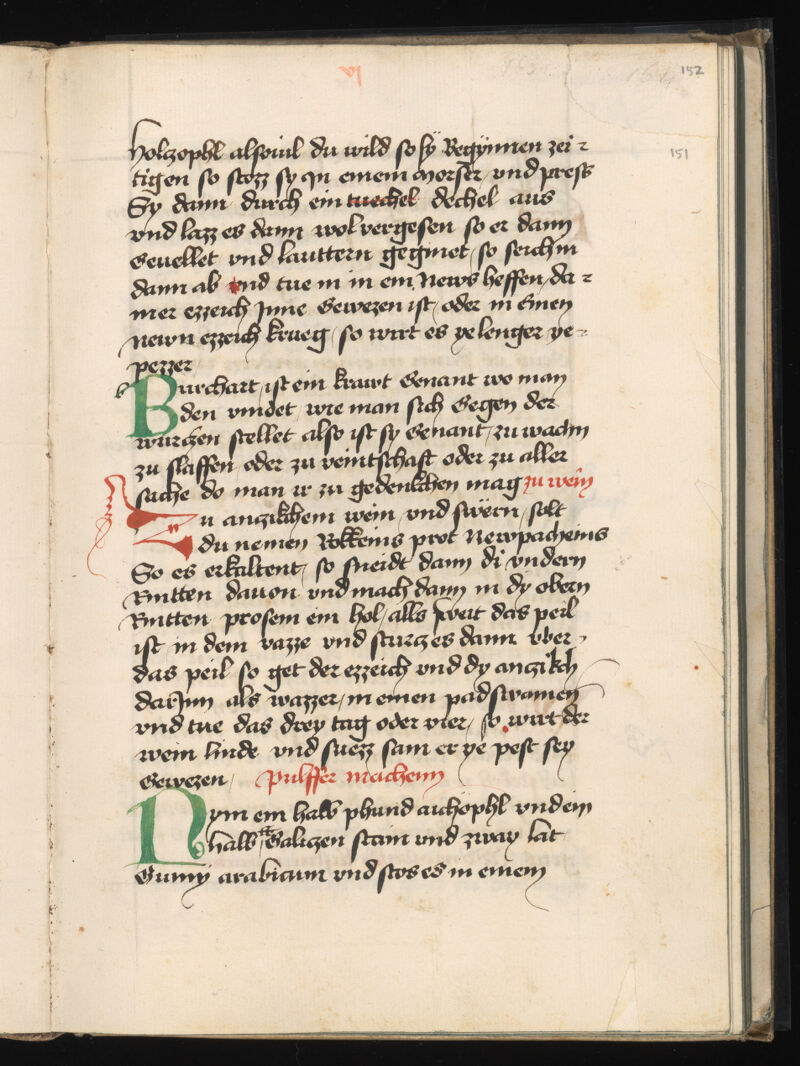 152
151
holczophl alsouil du wild so sy Begynnen zei-
tigen so stozz sy in einem Morser / vnd press
Sy dann durch ein tuechel dechel aus
vnd lazz es dann wol vergesen so er dann
Geuellet vnd lauttern geginnet / so seich in
dann ab vnd tue in in ein News heffen / dar-
inner ezzeich Inne Gewezen ist / oder in Einen
newn ezzeich krueg / so wirt es ye lenger ye
pezzer
Burchart / ist ein krawt Genant wo man
den vindet / wie man sich Gegen der
wurczen stellet also ist sy Genant / zu wachn
zu slaffen oder zu veintschaft oder zu aller
sache do man ir zu gedenkchen mag zu wein
Zu anczikchem wein vnd swern / solt
du nemen Rokkeins prot Newpacheins
So es erkaltent / so sneidt dann di vndern
Rintten dauon vnd mach dann in dy obern
Rintten prosem ein hol / alls weit das peil
ist in dem vazze vnd sturcz es dann vber
das peil so get der ezzeich vnd dy anczikch
darInn als wazzer / in einen padswamen
vnd tue das drey tag oder vier / so wirt der
wein linde vnd suezz sam er ye pest sey
Gewezen / pulffer machenn
Nym ein halb phund aichophl vnd ein
halb Galiczen stain vnd zway lat
Gumy arabicum vnd stos es in einem